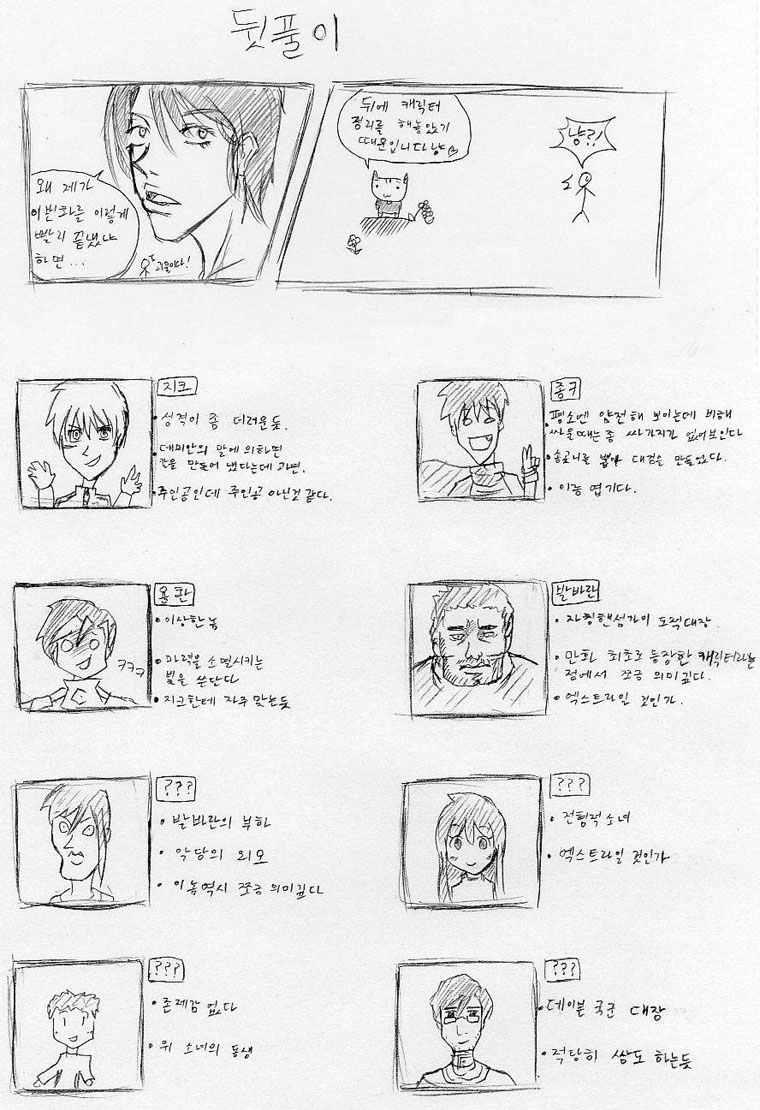 뒷풀이
왜 제가
이번화를 이렇게
빨리 끝냈냐
하면...
괴물이다!
뒤에 캐릭터
정리를 해놓았기
때문입니다냥
냥?!
지크
성격이 좀 더러운듯.
데미안의 말에 의하면
만들어 냈다는데 과연.
주인공인데 주인공 아닌것 같다.
좀키
평소엔 얌전해 보이는데 비해
싸울때는 좀 싸가지가 없어보인다
송곳니를 뽑아 대검을 만들었다.
이놈 엽기다.
용환
이상한 놈
마력을 소멸시키는
빛을 쓴단다
지크한테 자주 맞는듯
ㅋㅋㅋ
발바란
자칭핸섬가이 도적대장.
만화 최초로 등장한 캐릭터라는
점에서 쪼금 의미깊다.
엑스트라일 것인가.
???
발바란의 부하
악당의 외모
이놈역시 쪼금 의미깊다
???
전형적소녀
엑스트라일 것인가
???
존재감 없다
위 소녀의 동생
???
데이븐 국군 대장
적당히 쌈도 하는듯